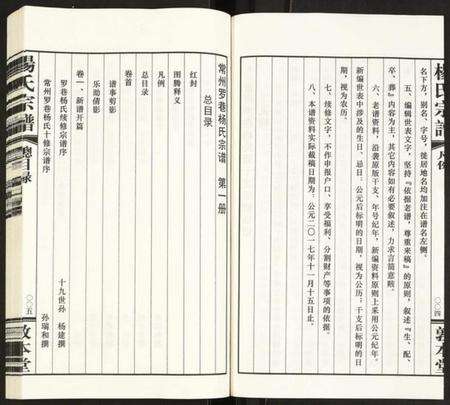 楊氏宗譜
凡例
〇〇四
敦本堂
名下方,别名、字号,徙居地名均加注在谱名左侧。
五、编辑世表文字,坚持『依据老谱,尊重来稿』的原则,叙述『生、配、
卒、葬』内容为主,其它内容如有必要叙述,力求言简意赅。
六、老谱资料,沿袭原版干支、年号纪年,新编资料原则上采用公元纪年。
新编世表中涉及的生日、忌日:公元后标明的日期,视为公历;干支后标明的日
期,视为农历。
七、续修文字,不作申报户口、享受福利、分割财产等事项的依据。
八、本谱资料实际截稿日期为:公元二〇一七年十一月十五日止。
常州罗巷杨氏宗谱 第一册
总目录
红封
图腾释义
凡例
总目录
卷首
谱事剪影
乐助倩影
卷一、新谱开篇
罗巷杨氏续修宗谱序 十九世孙 杨建撰
常州罗巷杨氏十修宗谱序 孙瑞和撰
楊氏宗譜
總目录
〇〇五
敦本堂